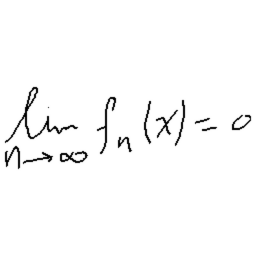 lim_{n→∞} f_n(x) = 0